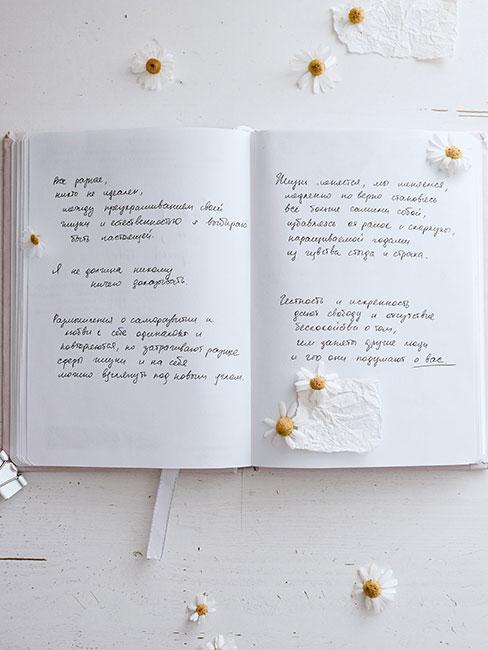 Все разные,
никто не идеален,
между приукрашиванием своей
жизни и естественностью я выбираю
быть настоящей.
Я не должна никому
ничего доказывать.
Размышления о саморазвитии и
любви к себе одинаковы и
повторяются, но затрагивают разные
сферы жизни и на себя
можно взглянуть под новым углом.
Жизнь меняется, мы меняемся,
медленно но верно становясь
все больше самими собой,
избавляясь от рамок и скорлупы,
наращиваемой годами
из чувства стыда и страха.
Честность и искренность
дают свободу и отсутствие
беспокойства о том,
чем заняты другие люди
и что они подумают о вас.